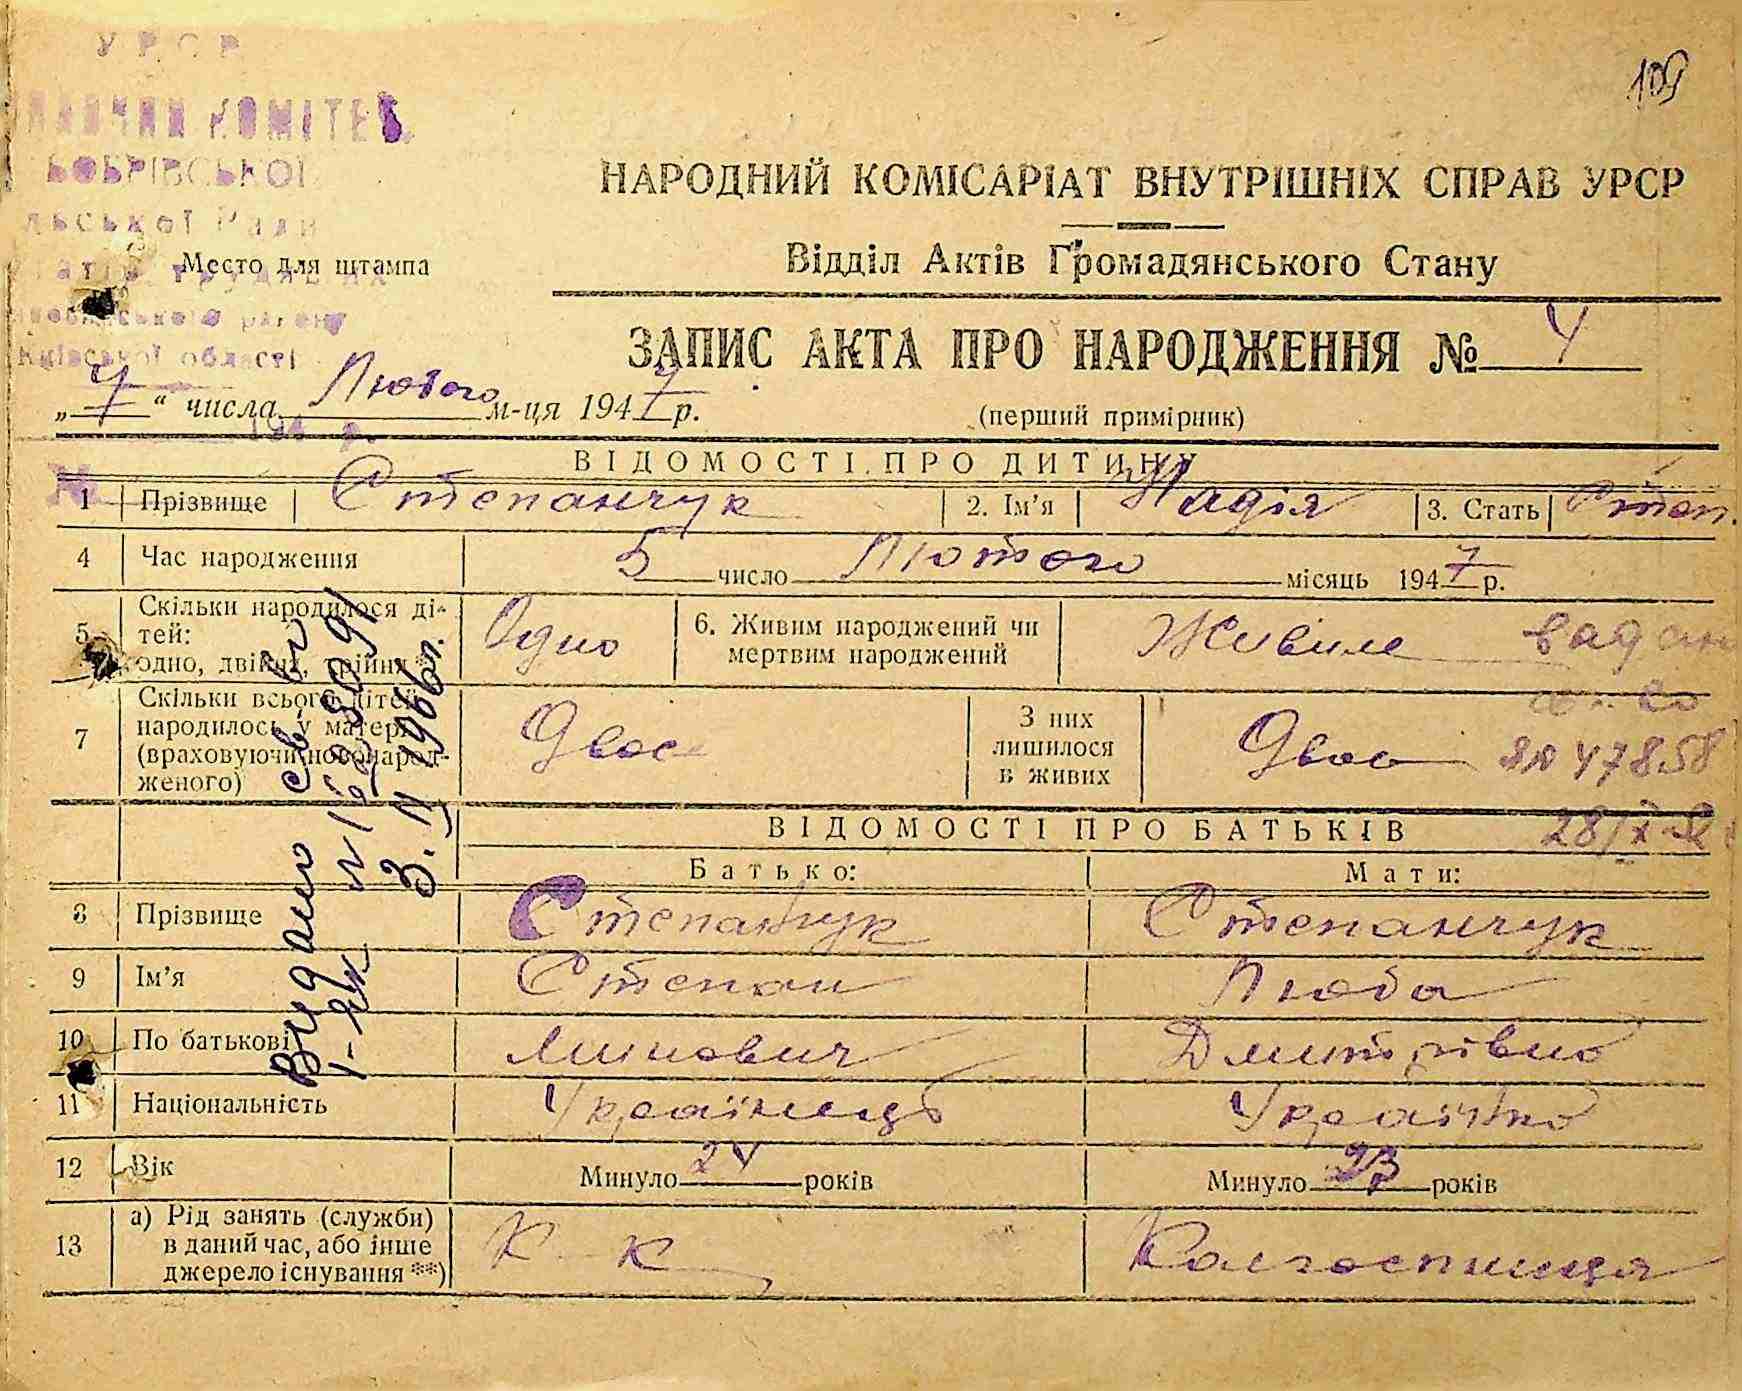 УРСР
109
КОМІТЕТ
БОБРІВСЬКОЇ
НАРОДНИЙ КОМІСАРІАТ ВНУТРІШНІХ СПРАВ УРСР
Ради
Відділ Актів Громадянського Стану
Место для штампа
району
Київської області
ЗАПИС АКТА ПРО НАРОДЖЕННЯ № 4
„7“ числа Лютого м-ця 1947 р.
(перший примірник)
194 р.
ВІДОМОСТІ ПРО ДИТИНУ
1 Прізвище Степанчук 2. Ім'я Надія 3. Стать
4 Час народження 5 число Лютого місяць 1947 р.
5 Скільки народилося ді-
тей:
одно, двійня, трійня *)
Одно
6. Живим народжений чи
мертвим народжений
7 Скільки всього дітей
народилось у матері
(враховуючи новонарод-
женого)
Двоє
З них
лишилося
в живих
Двоє
47858
Видано
3. II 1966р.
ВІДОМОСТІ ПРО БАТЬКІВ
Батько: Мати:
8 Прізвище Степанчук Степанчук
9 Ім'я Степан Люба
10 По батькові Минович Дмитрівна
11 Національність Українець Українка
12 Вік Минуло 24 років Минуло 23 років
13 а) Рід занять (служби)
в даний час, або інше
джерело існування **)
К к Колгоспниця